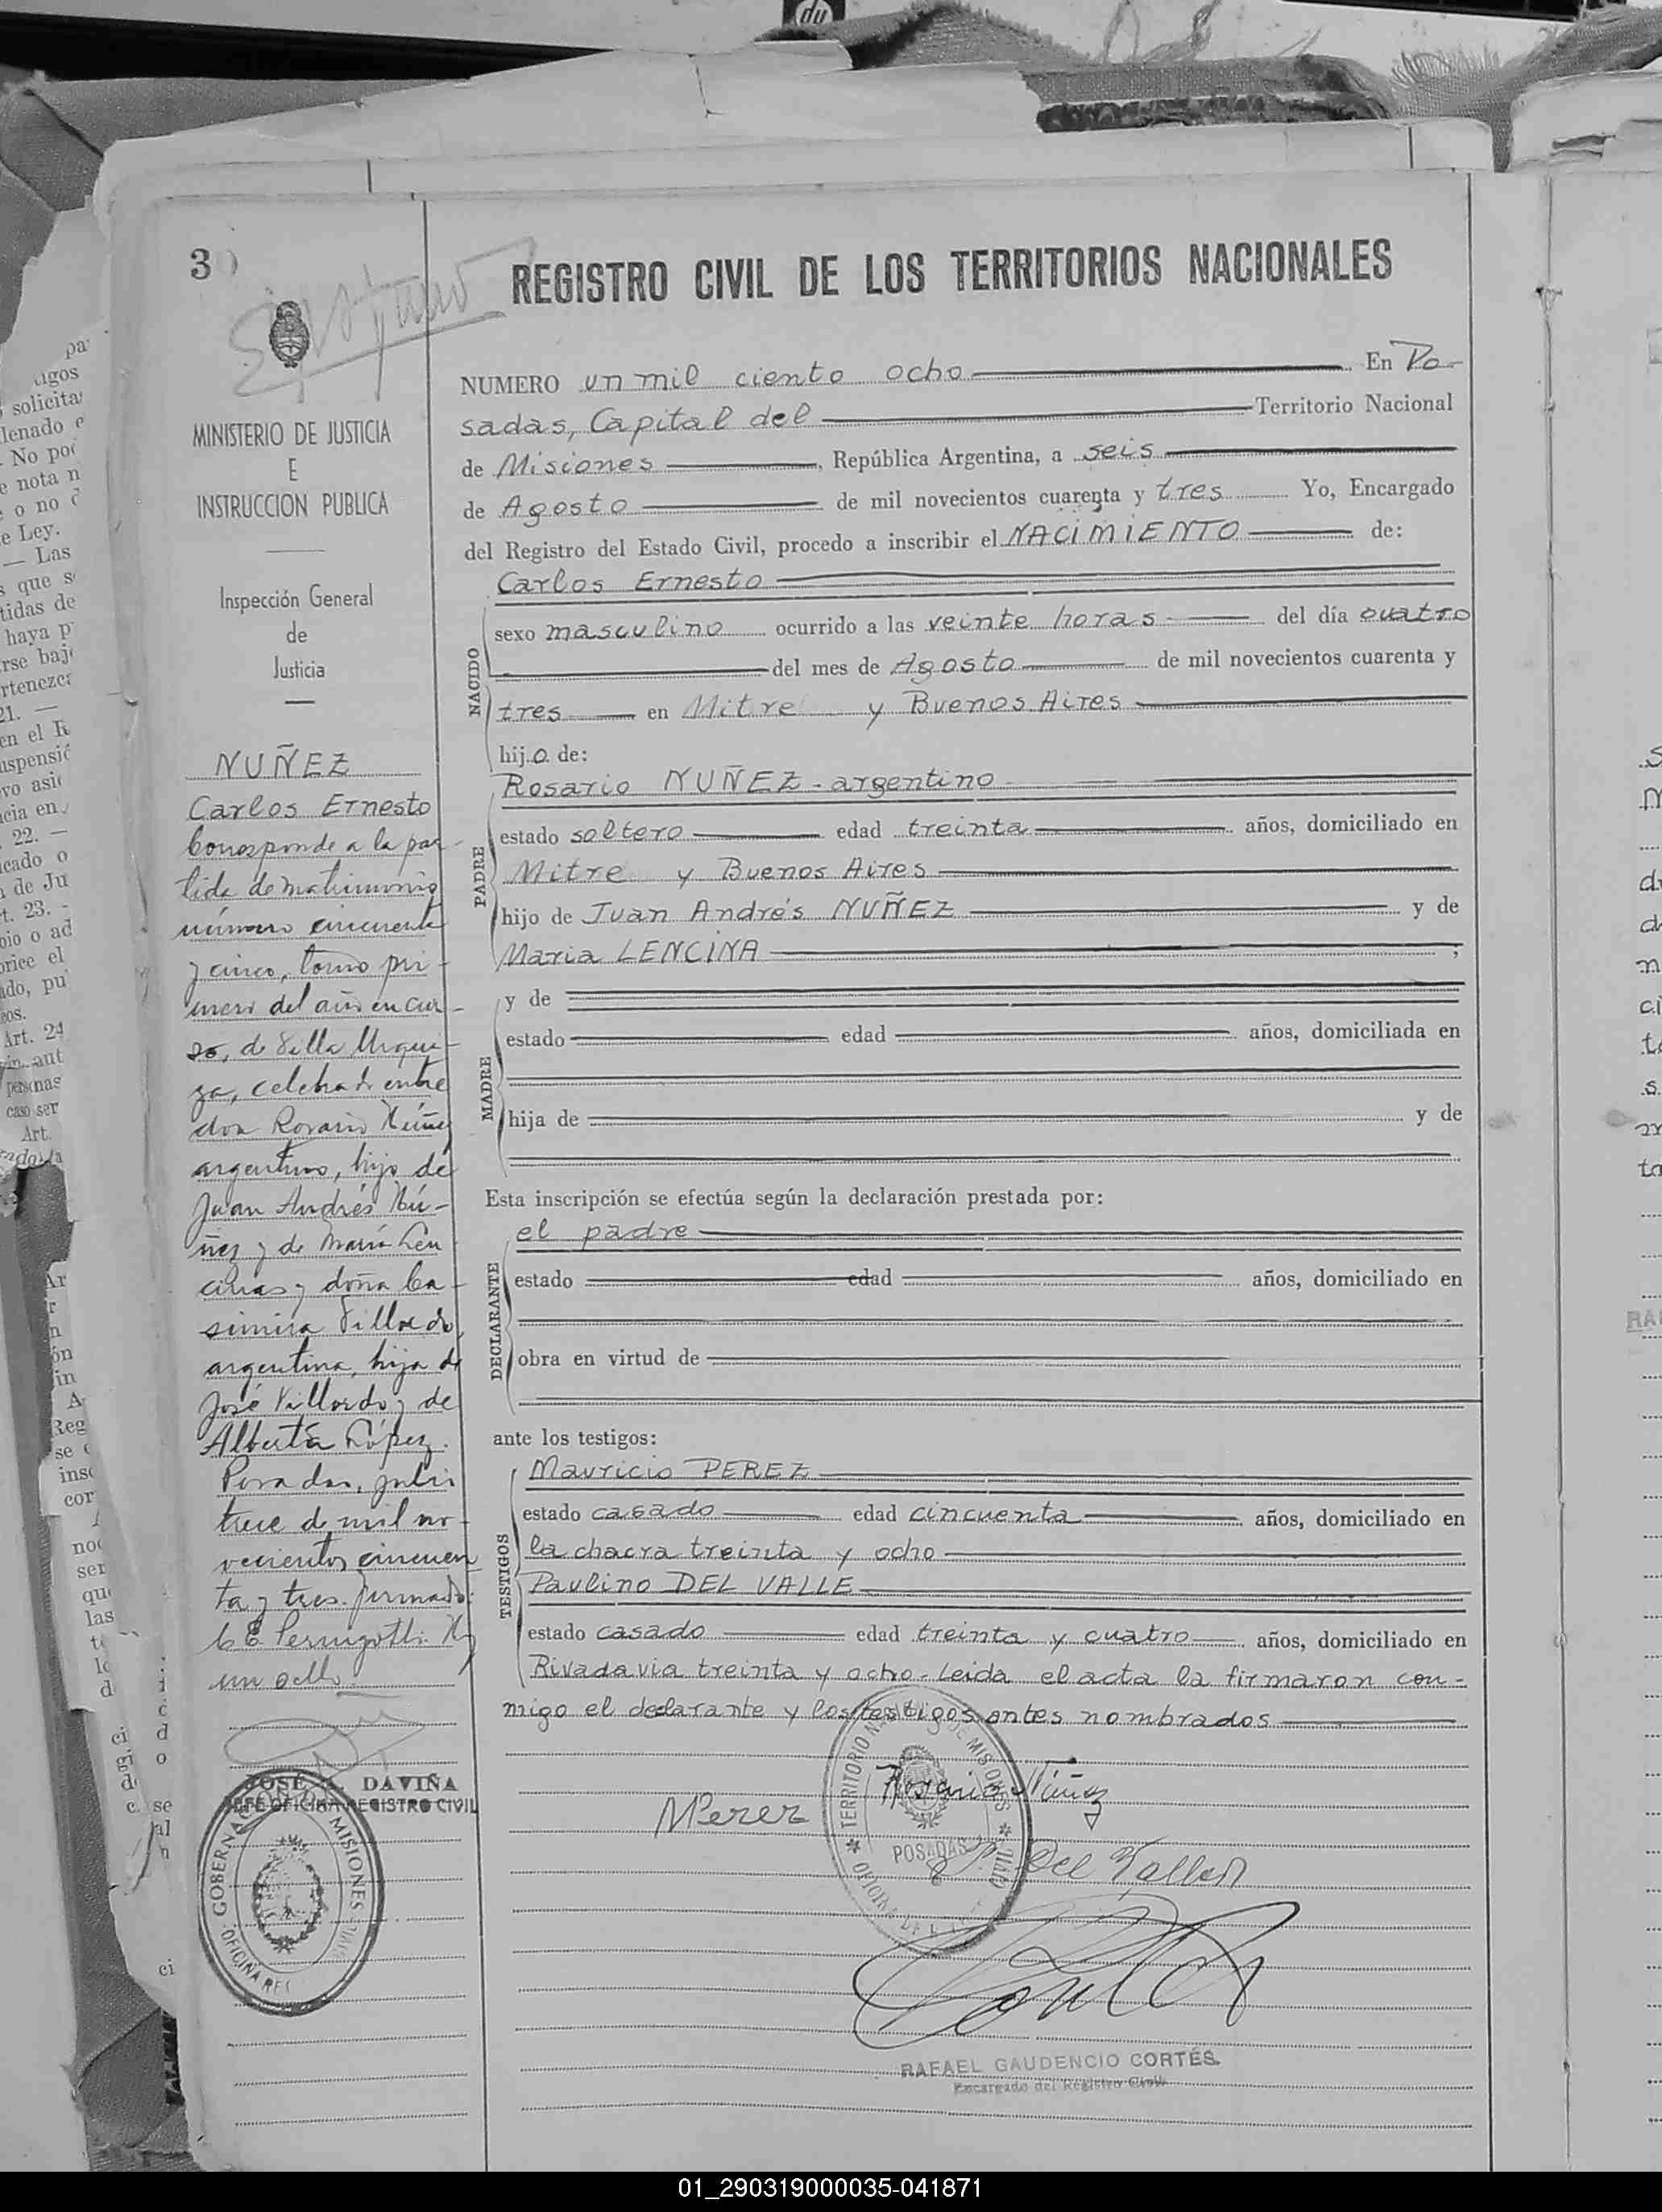 3
REGISTRO CIVIL DE LOS TERRITORIOS NACIONALES
MINISTERIO DE JUSTICIA
E
INSTRUCCION PUBLICA
Inspección General
de
Justicia
NUÑEZ
Carlos Ernesto
Corresponde a la par-
tida de matrimonio
número cincuenta
y cinco, tomo pri-
mero del año en cur-
so, de Villa Urqui-
za, celebrado entre
don Rosario Núñez
argentino, hijo de
Juan Andrés Nú-
ñez y de María Len
cinas y doña Ca-
simira Villordo,
argentina, hija de
José Villordo y de
Alberta López.
Posadas, julio
trece de mil no-
vecientos cincuen
ta y tres. firmado:
un sello
JOSÉ DAVIÑA
JEFE OFICINA REGISTRO CIVIL
GOBERNACION MISIONES
NUMERO un mil ciento ocho En Po-
sadas, Capital del Territorio Nacional
de Misiones, República Argentina, a seis
de Agosto de mil novecientos cuarenta y tres Yo, Encargado
del Registro del Estado Civil, procedo a inscribir el NACIMIENTO de:
Carlos Ernesto
NACIDO
sexo masculino ocurrido a las veinte horas del día cuatro
del mes de Agosto de mil novecientos cuarenta y
tres en Mitre y Buenos Aires
hijo de:
PADRE
Rosario NUÑEZ - argentino
estado soltero edad treinta años, domiciliado en
Mitre y Buenos Aires
hijo de Juan Andrés NUÑEZ y de
Maria LENCINA ;
MADRE
y de
estado edad años, domiciliada en
hija de y de
Esta inscripción se efectúa según la declaración prestada por:
DECLARANTE
el padre
estado edad años, domiciliado en
obra en virtud de
ante los testigos:
TESTIGOS
Mauricio PEREZ
estado casado edad cincuenta años, domiciliado en
la chacra treinta y ocho
Paulino DEL VALLE
estado casado edad treinta y cuatro años, domiciliado en
Rivadavia treinta y ocho - Leida el acta la firmaron con-
migo el declarante y los testigos antes nombrados
TERRITORIO NACIONAL DE MISIONES
POSADAS
MPerez
Rosario Núñez
Del Valle
RAFAEL GAUDENCIO CORTÉS
Encargado del Registro Civil
01_290319000035-041871